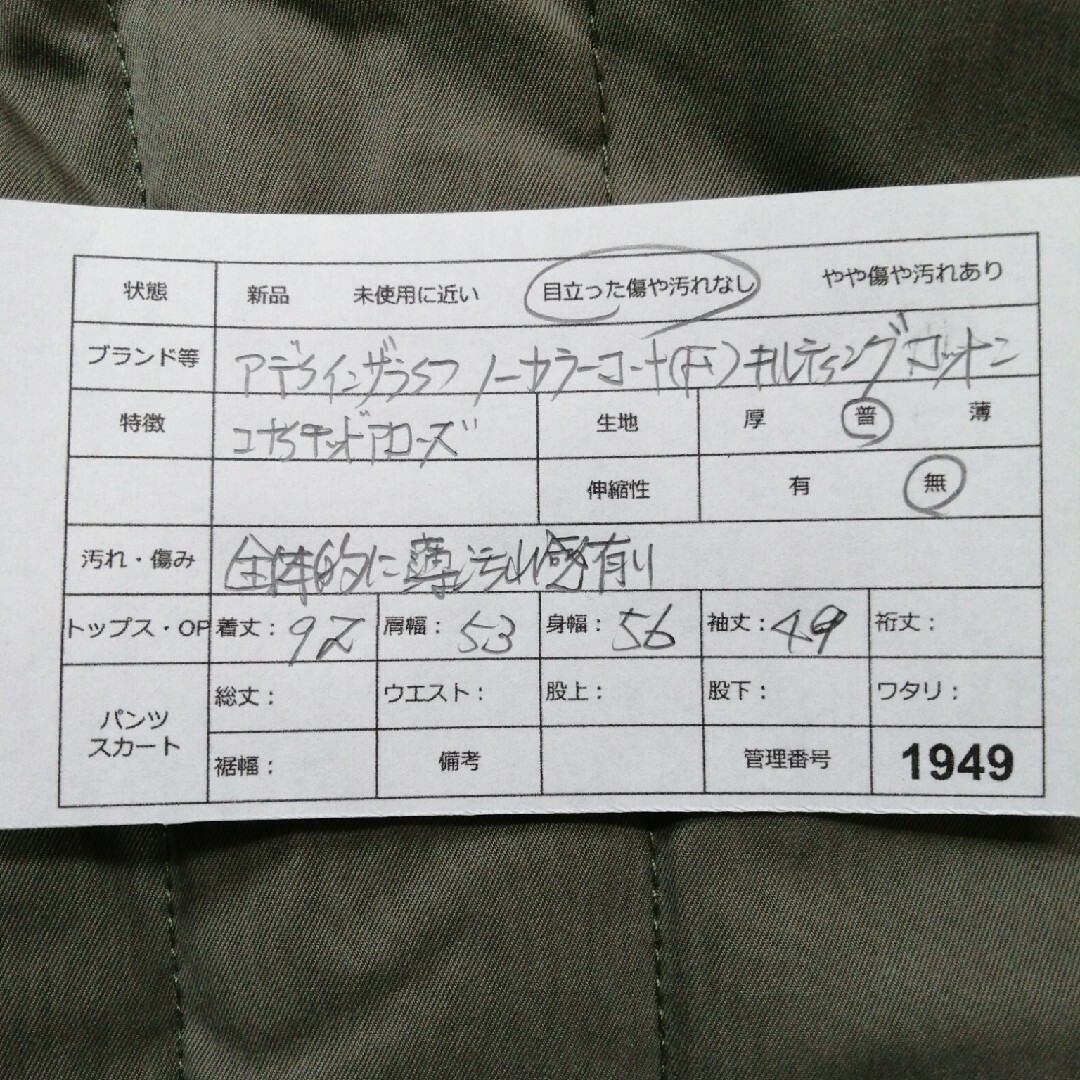 状態 新品 未使用に近い 目立った傷や汚れなし やや傷や汚れあり
ブランド等 アデイインザライフ ノーカラーコート(F) キルティングコットン
特徴 ユナイテッドアローズ 生地 厚 普 薄
伸縮性 有 無
汚れ・傷み 全体的に薄汚れ感有り
トップス・OP 着丈：92 肩幅：53 身幅：56 袖丈：49 裄丈：
パンツ スカート 総丈： ウエスト： 股上： 股下： ワタリ：
裾幅： 備考 管理番号 1949